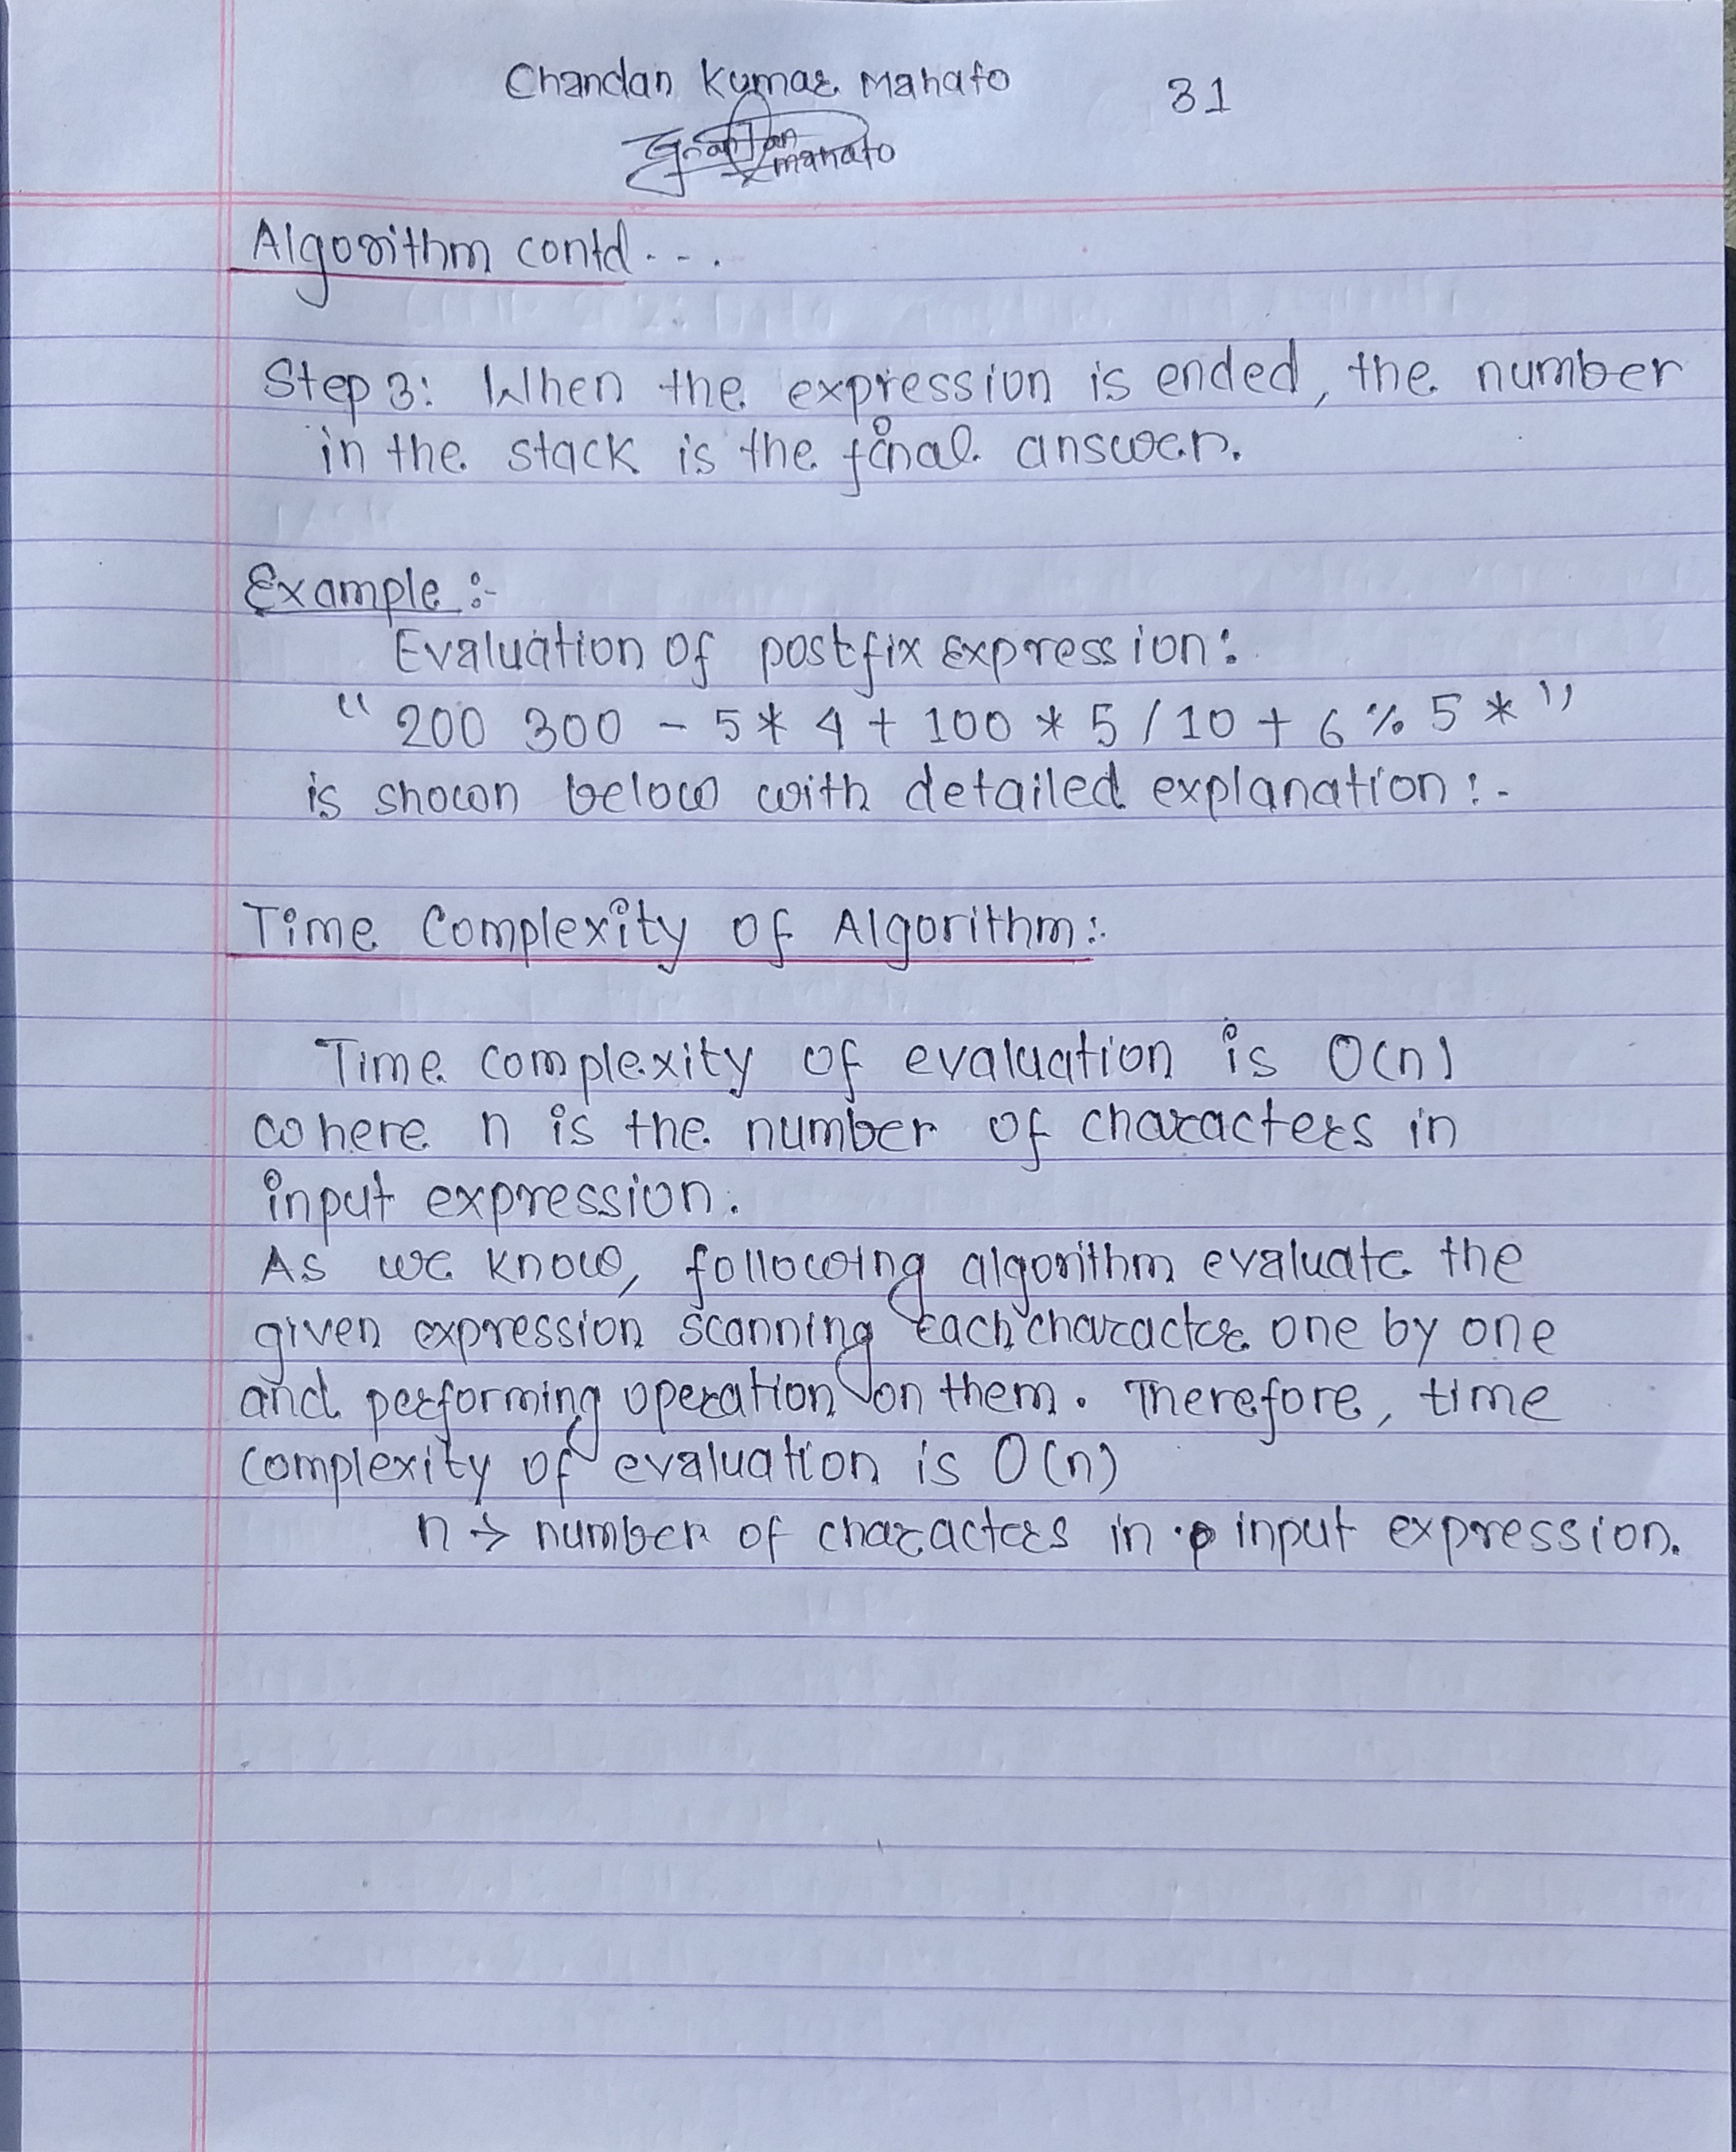 Chandan Kumar Mahato 31
mahato
Algorithm contd...
Step 3: When the expression is ended, the number
in the stack is the final answer.
Example :-
Evaluation of postfix Expression:
“ 200 300 - 5 * 4 + 100 * 5 / 10 + 6 % 5 * ”
is shown below with detailed explanation :-
Time Complexity of Algorithm:
Time complexity of evaluation is O(n)
where n is the number of characters in
input expression.
As we know, following algorithm evaluate the
given expression scanning each character one by one
and performing operation on them. Therefore, time
complexity of evaluation is O(n)
n → number of characters in input expression.